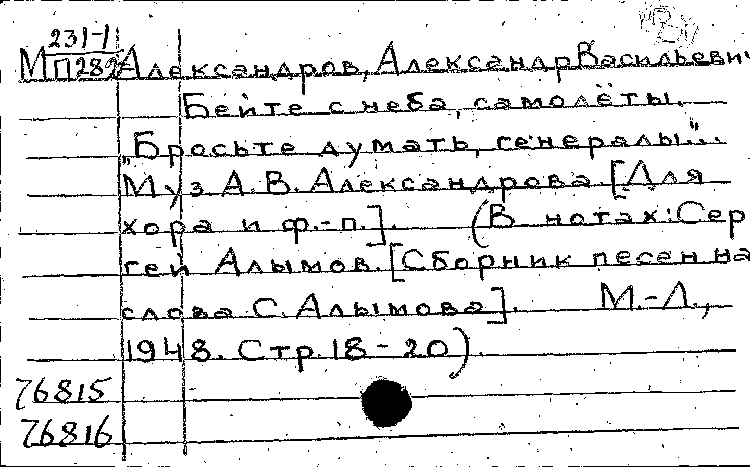 231-1
МП282 Александров, Александр Васильевич
Бейте с неба, самолёты.
„Бросьте думать, генералы"...
Муз. А. В. Александрова. [Для
хора и ф.-п.]. (В нотах: Сер
гей Алымов. [Сборник песен на
слова С. Алымова]. М.-Л.,
1948. Стр. 18-20).
76815
76816